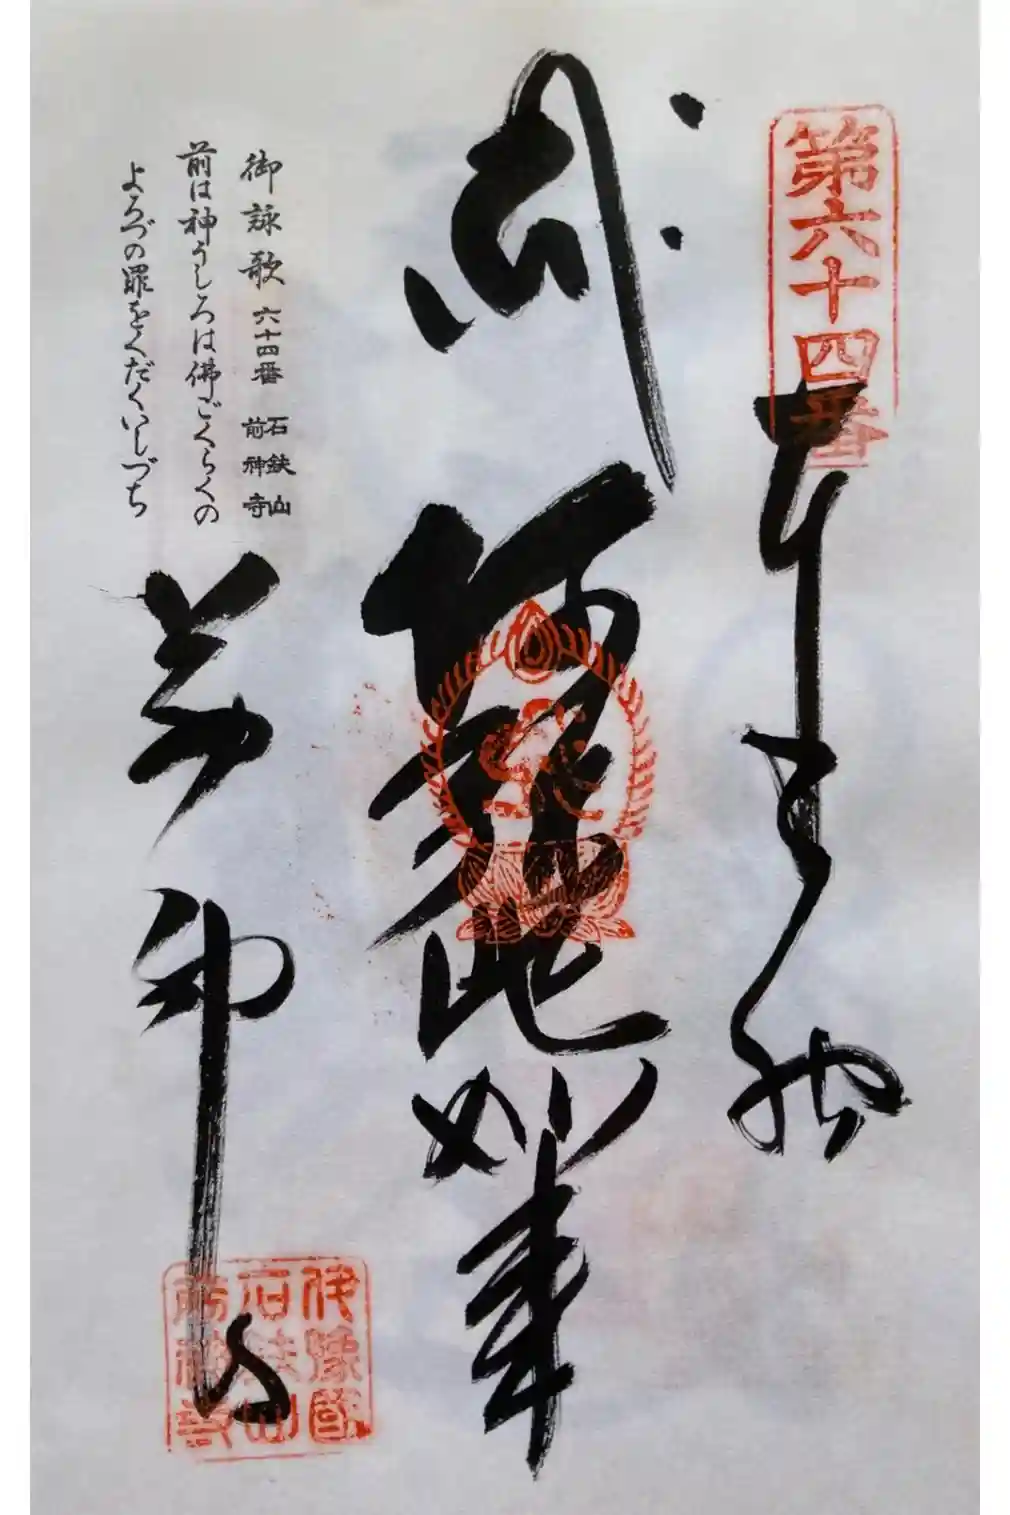 第六十四番
奉納
阿弥陀如来
前神寺
御詠歌 六十四番 石鈇山 前神寺
前は神うしろは佛ごくらくの
よろづの罪をくだくいしづち
伊豫國
石鈇山
前神寺